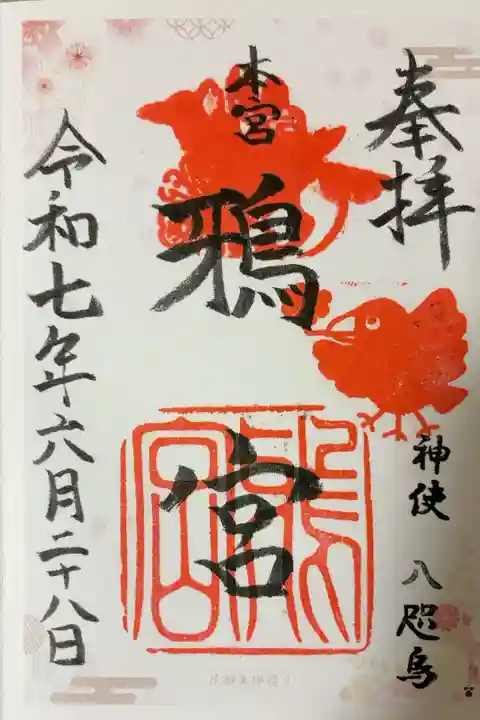 奉拝
神使 八咫烏
本宮
鴉宮
令和七年六月二十八日